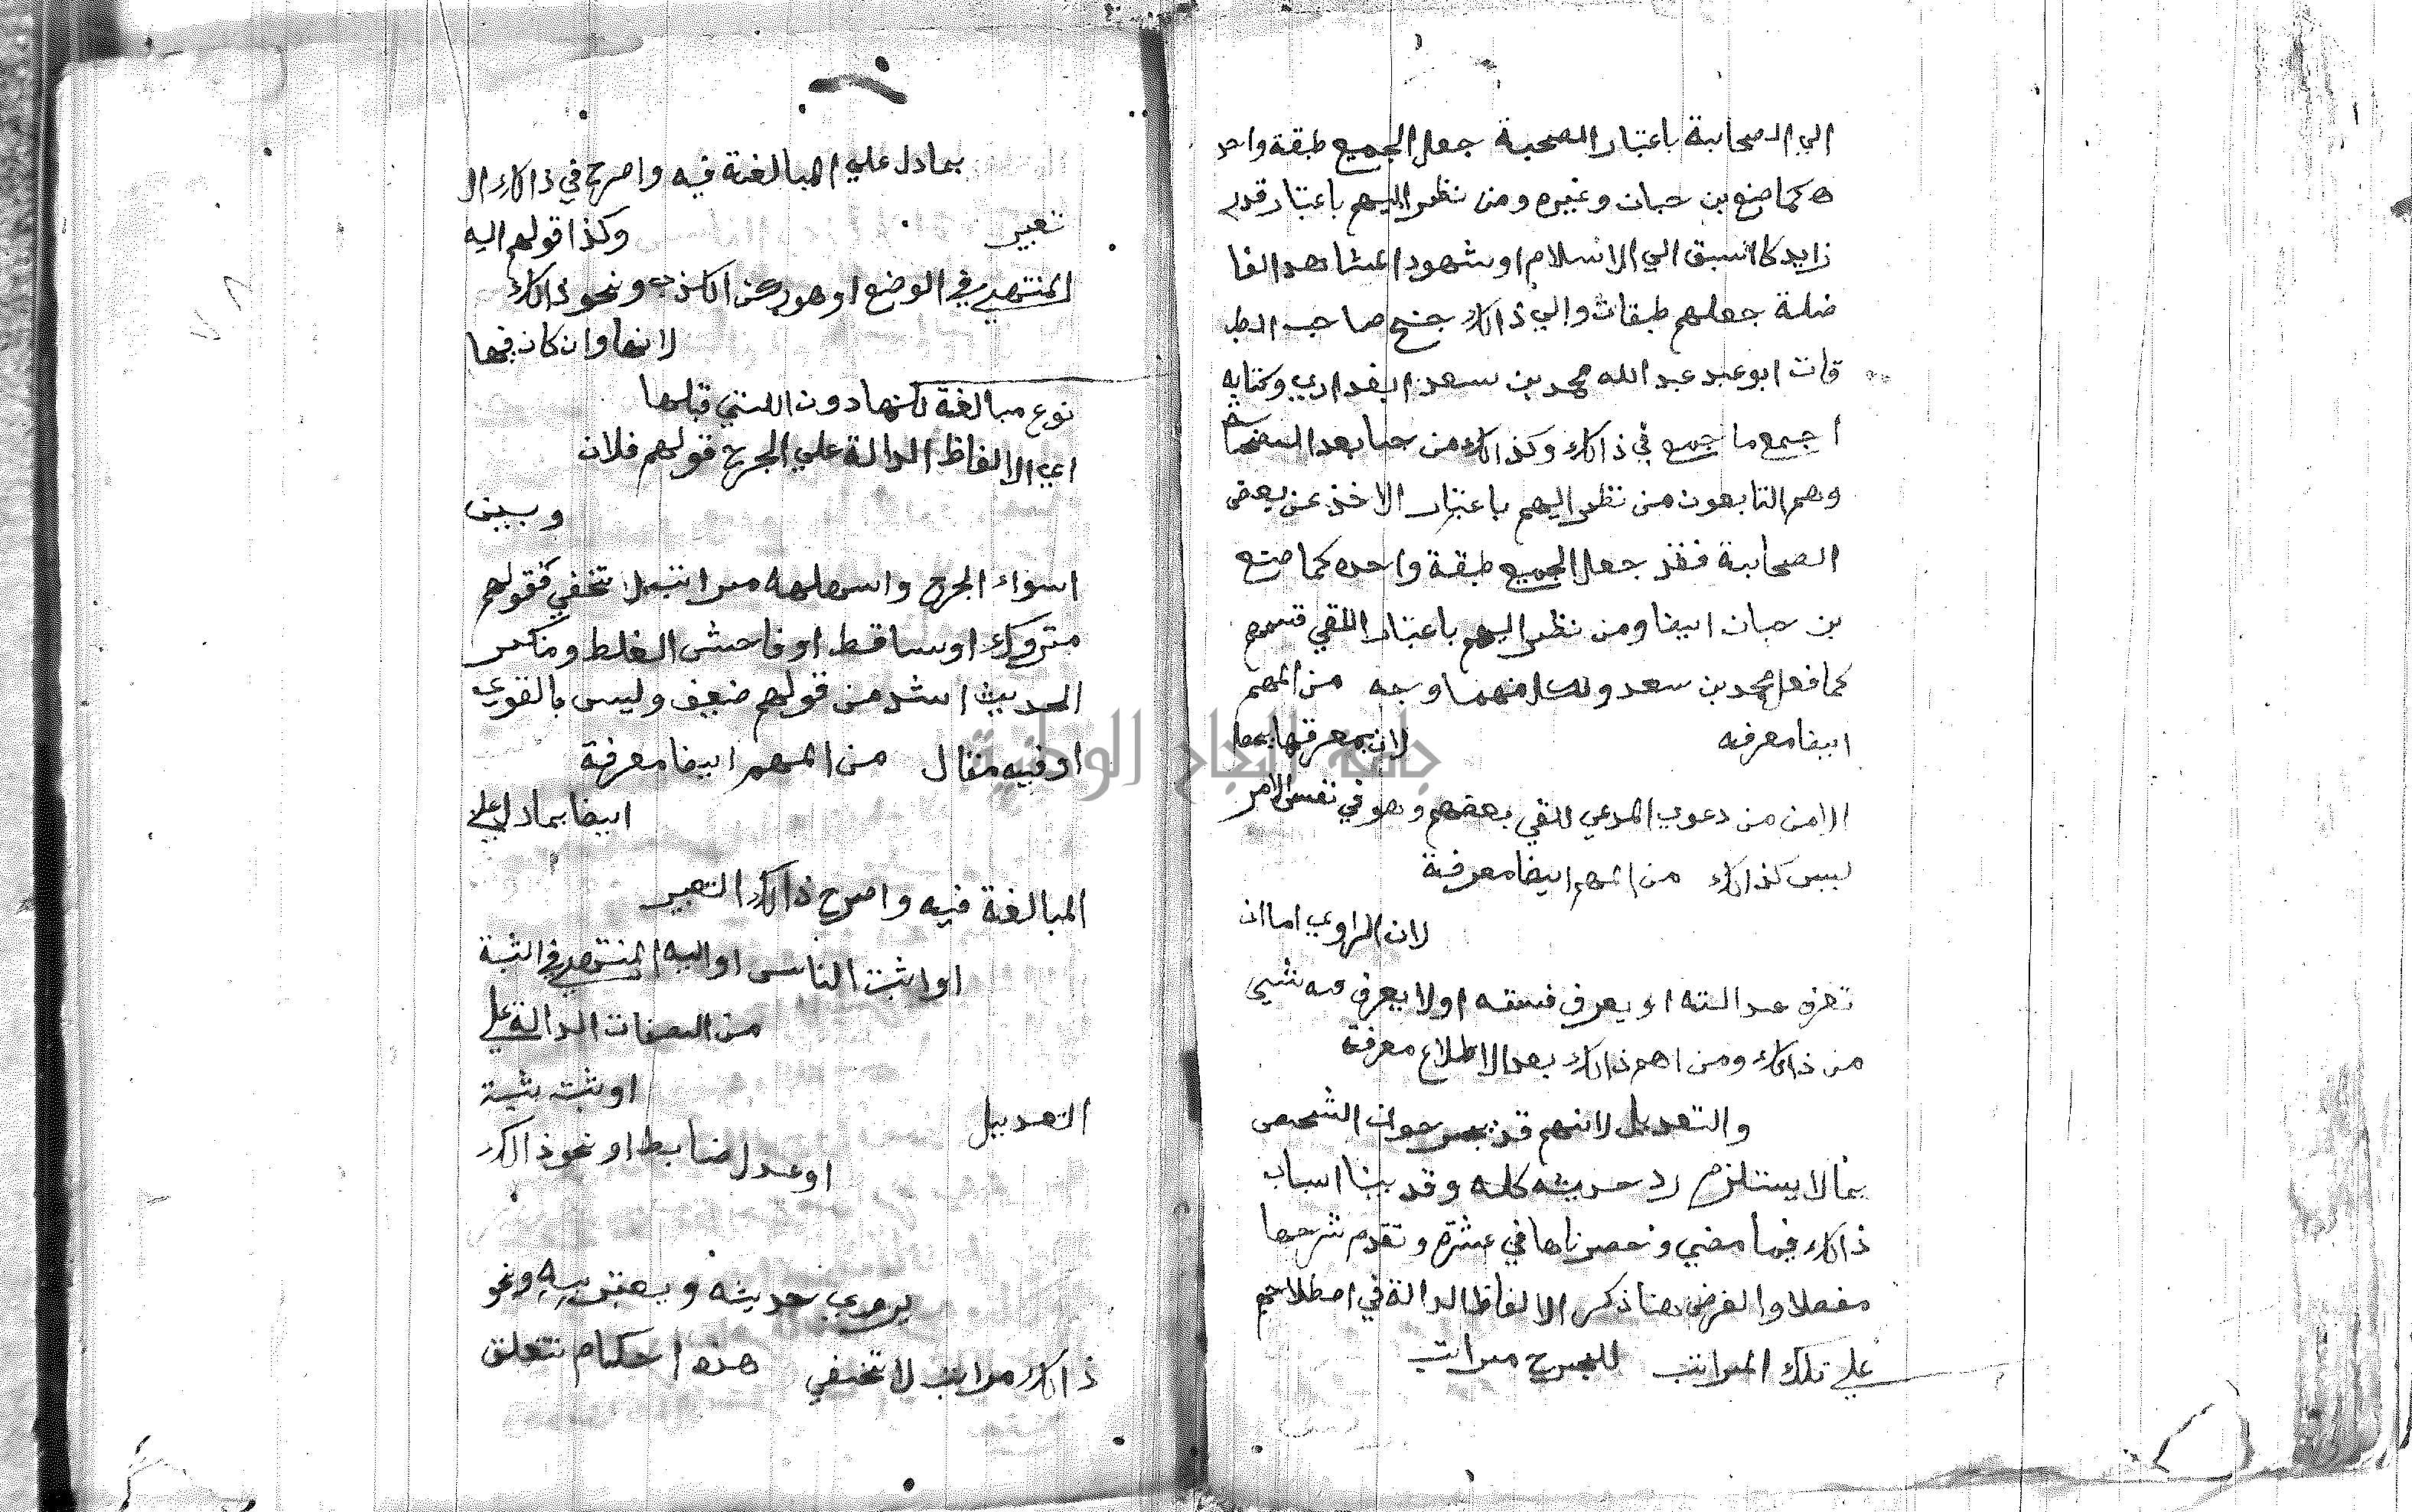 الي الصحابة باعتبار الصحبة جعل الجميع طبقة واحد
ه كما صنع بن حبان وغيره ومن نظر اليهم باعتبار قدر
زايد كا السبق الي الاسلام او شهود المشاهد الفا
ضلة جعلهم طبقات والي ذالك جنح صاحب الطب
قات ابو عبد عبد الله محمد بن سعد البغدادي وكتابه
اجمع ما جمع في ذالك وكذالك من جا بعد الصحابة
وهم التابعون من نظر اليهم باعتبار الاخذ عن بعض
الصحابة فقذ جعل الجميع طبقة واحده كما صنع
بن حبان ايضا ومن نظر اليهم باعتبار اللقي قسمهم
كما فعل محمد بن سعد ولكل منهما وجه من المهم
ايضا معرفه لان بمعرفتها يحصل
الامن من دعوي المدعي للقي بعضهم وهو في نفس الامر
ليس كذالك من المهم ايضا معرفة
لان الراوي اما ان
تعرف عدالته او يعرف فسقه اولا يعرف فيه شيي
من ذالك ومن اهم ذالك بعد الاطلاع معرفة
والتعديل لانهم قد يجرحوان الشخص
بما لا يستلزم رد حديثه كله وقد بينا اسباب
ذالك فيما مضي وحصرناها في عشرة وتقدم شرحها
مفصلا والغرض هنا ذكر الالفاظ الدالة في اصطلاحهم
علي تلك المراتب للجرح مراتب
بما دل علي المبالغة فيه واصرح في ذالك ال
تعبير وكذا قولهم اليه
المنتهي في الوضع او هو ركن الكذب ونحو ذالك
لانها وان كان فيها
نوع مبالغة لكنها دون اللتي قبلها
اي الالفاظ الدالة علي الجرح قولهم فلان
وبين
اسواء الجرح واسهلهه مراتب لا تخفي فقولهم
متروك او ساقط او فاحش الغلط ومنكر
الحديث اشد من قولهم ضعيف وليس بالقوي
او فيه مقال من المهم ايضا معرفة
ايضا بما دل علي
المبالغة فيه واصرح ذالك التعبير
او اثبت الناس او اليه المنتهي في الثبة
من الصفات الدالة علي
التعديل او ثبت ثبة
او عدل ضابط او نحو ذالك
يروي حديثه ويعتبر به ونحو
ذالك مراتب لا تخفي هذه احكام تتعلق
جامعة النجاح الوطنية